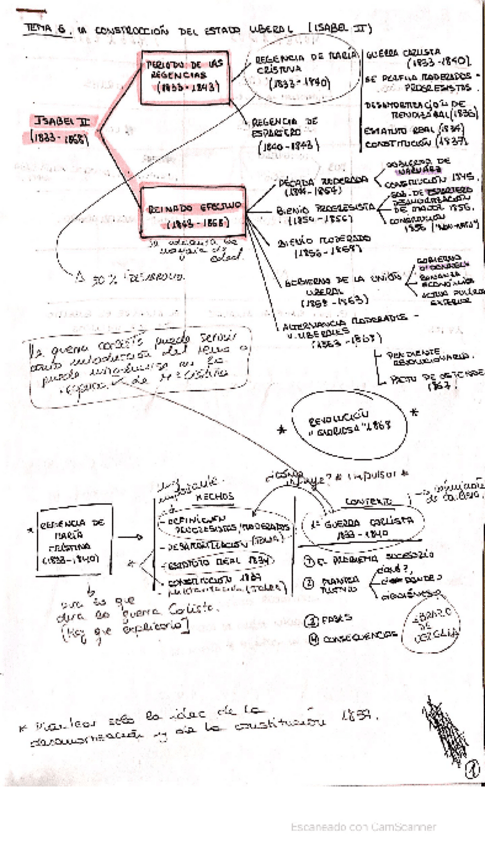 TEMA 6. LA CONSTRUCCIÓN DEL ESTADO LIBERAL (ISABEL II)
ISABEL II
(1833-1868)
PERIODO DE LAS
REGENCIAS
(1833-1843)
REGENCIA DE MARÍA
CRISTINA
(1833-1840)
GUERRA CARLISTA
(1833-1840).
SE PERFILA MODERADOS -
PROGRESISTAS.
DESAMORTIZACIÓN DE
MENDIZÁBAL (1836)
ESTATUTO REAL (1834)
CONSTITUCIÓN (1837)
REGENCIA DE
ESPARTERO
(1840-1843)
REINADO EFECTIVO
(1843-1868)
se adelanta la
edad
DÉCADA MODERADA
(1844-1854)
GOBIERNO DE
NARVÁEZ
CONSTITUCIÓN 1845.
BIENIO PROGRESISTA
(1854-1856)
ESPARTERO
DESAMORTIZACIÓN
DE MADOZ 1855.
CONSTITUCIÓN
1856 (NON-NATA)
BIENIO MODERADO
(1856-1858)
GOBIERNO DE LA UNIÓN
LIBERAL
(1858-1863)
GOBIERNO
O'DONNELL
BONANZA
ECONÓMICA
ACTIVA POLÍTICA
EXTERIOR
ALTERNANCIA MODERADOS -
U. LIBERALES
(1863-1868)
PENDIENTE
REVOLUCIONARIA.
PACTO DE OSTENDE
1867.
50% DESARROLLO.
La guerra carlista puede servir
como introducción del tema o
puede introducirse en la
regencia de Mª Cristina
* REVOLUCIÓN *
"GLORIOSA" 1868
¿Cómo influye? * impulsor *
* REGENCIA DE
MARÍA
CRISTINA
(1833-1840)
importante
HECHOS
- DEFINICIÓN
PROGRESISTAS/MODERADOS
- DESAMORTIZACIÓN
- ESTATUTO REAL 1834
- CONSTITUCIÓN 1837
CONTEXTO
1ª GUERRA CARLISTA
1833-1840
① EL PROBLEMA SUCESORIO
② PLANTEA
¿qué?,
¿dónde?
¿quiénes?
③ FASES
④ CONSECUENCIAS
ABRAZO
DE
VERGARA
dura lo que
dura la Guerra Carlista.
[Hay que explicarlo]
* Plantear solo la idea de la
desamortización y de la constitución 1837.
①
Escaneado con CamScanner